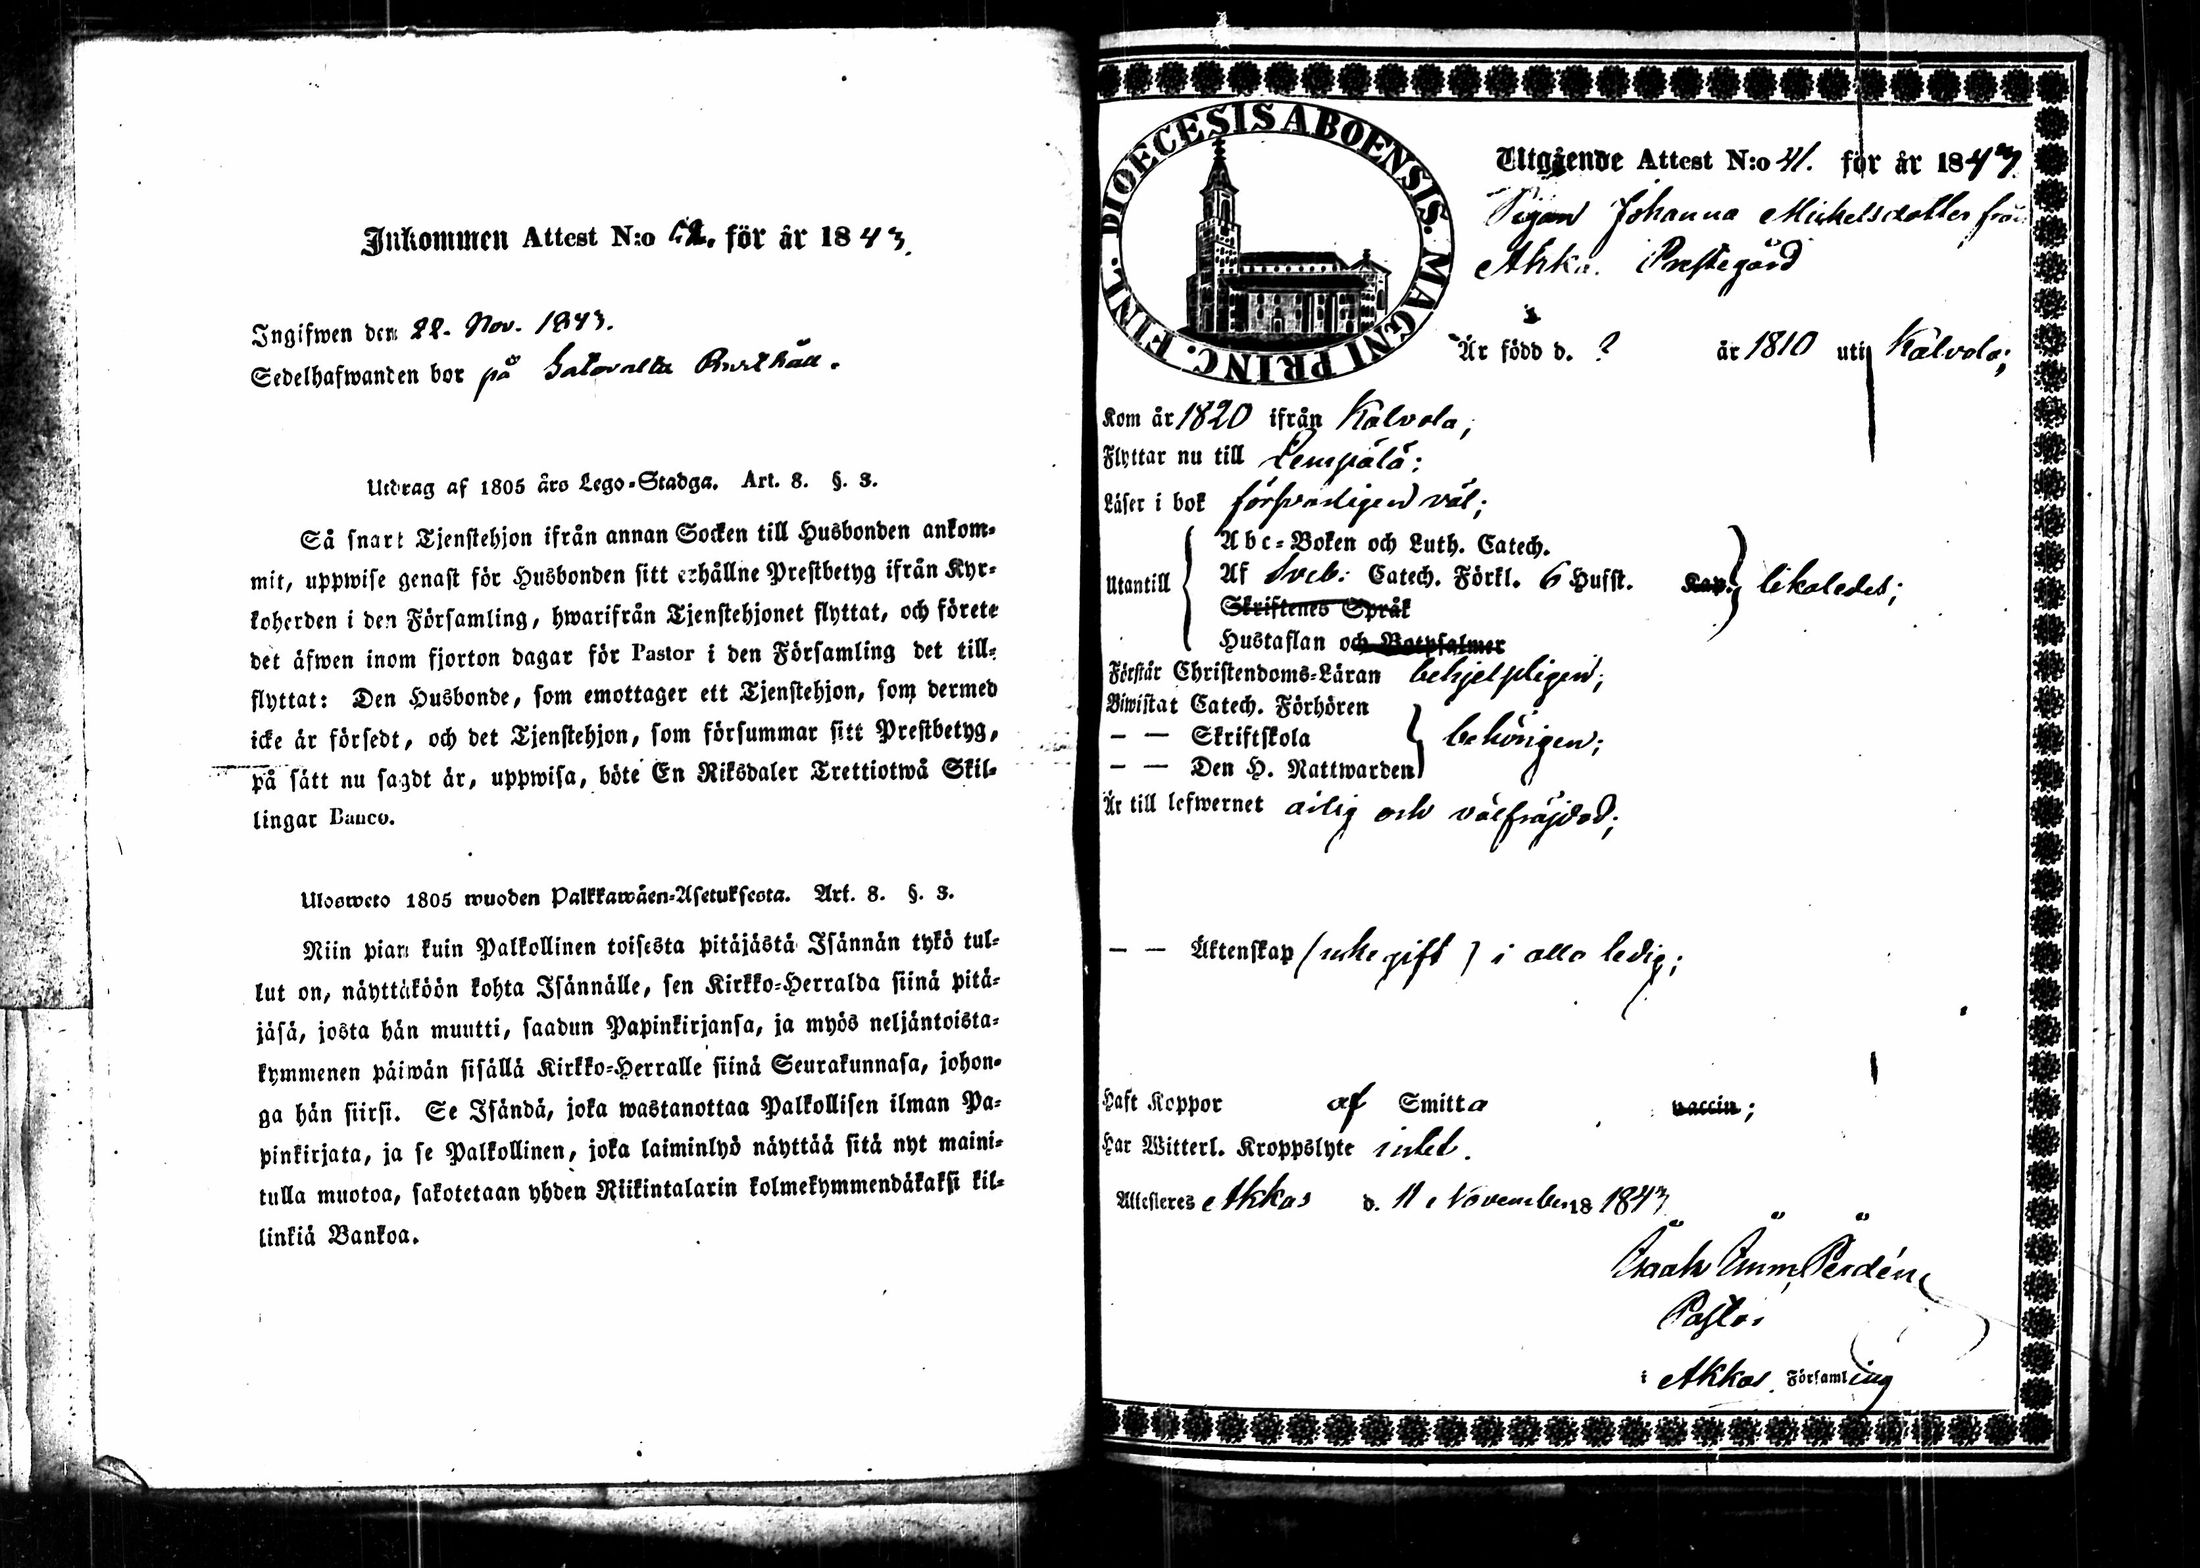 Inkommen Attest N:o 52. för år 1843.
Ingifwen den 22. Nov. 1843.
Sedelhafwanden bor på
Utdrag af 1805 års Lego-Stadga. Art. 8. §. 3.
Så snart Tjenstehjon ifrån annan Socken till Husbonden ankom-
mit, uppwise genast för Husbonden sitt erhållne Prestbetyg ifrån Kyr-
koherden i den Församling, hwarifrån Tjenstehjonet flyttat, och förete
det äfwen inom fjorton dagar för Pastor i den Församling det till-
flyttat: Den Husbonde, som emottager ett Tjenstehjon, som dermed
icke är försedt, och det Tjenstehjon, som försummar sitt Prestbetyg,
på sätt nu sagdt är, uppwisa, böte En Riksdaler Trettiotwå Skil-
lingar Banco.
Ulosweto 1805 wuoden Palkkawäen-Asetuksesta. Art. 8. §. 3.
Niin pian kuin Palkollinen toisesta pitäjästä Isännän tykö tul-
lut on, näyttäköön kohta Isännälle, sen Kirkko-Herralda siinä pitä-
jäsä, josta hän muutti, saadun Papinkirjansa, ja myös neljäntoista-
kymmenen päiwän sisällä Kirkko-Herralle siinä Seurakunnasa, johon-
ga hän siirsi. Se Isändä, joka wastanottaa Palkollisen ilman Pa-
pinkirjata, ja se Palkollinen, joka laiminlyö näyttää sitä nyt maini-
tulla muotoa, sakotetaan yhden Riikintalarin kolmekymmendäkaksi kil-
linkiä Bankoa.
DIOECESIS ABOENSIS. MAGNI PRINC. FINL.
Utgående Attest N:o 41. för år 1843.
Pigan Johanna Mickelsdotter från
Akka Prestegård
Är född d. ? år 1810 uti Kalvola;
Kom år 1820 ifrån Kalvola;
Flyttar nu till Lempälä;
Läser i bok försvarligen väl;
Utantill
Abc-Boken och Luth. Catech.
Af Sveb: Catech. Förkl. 6 Husst. Kap. likaledes;
Skriftenes Språk
Hustaflan och Botpsalmer
Förstår Christendoms-Läran behjelpligen;
Biwistat Catech. Förhören
— — Skriftskola behörigen;
— — Den H. Nattwarden
Är till lefwernet ärlig och välfräjdad;
— — Äktenskap (icke gift) i allo ledig;
Haft Koppor af Smitta vaccin;
Har Witterl. Kroppslyte intet.
Attesteres Akkas d. 11 November 18 1843
Isaak Perdén
Pastor
i Akkas Församling